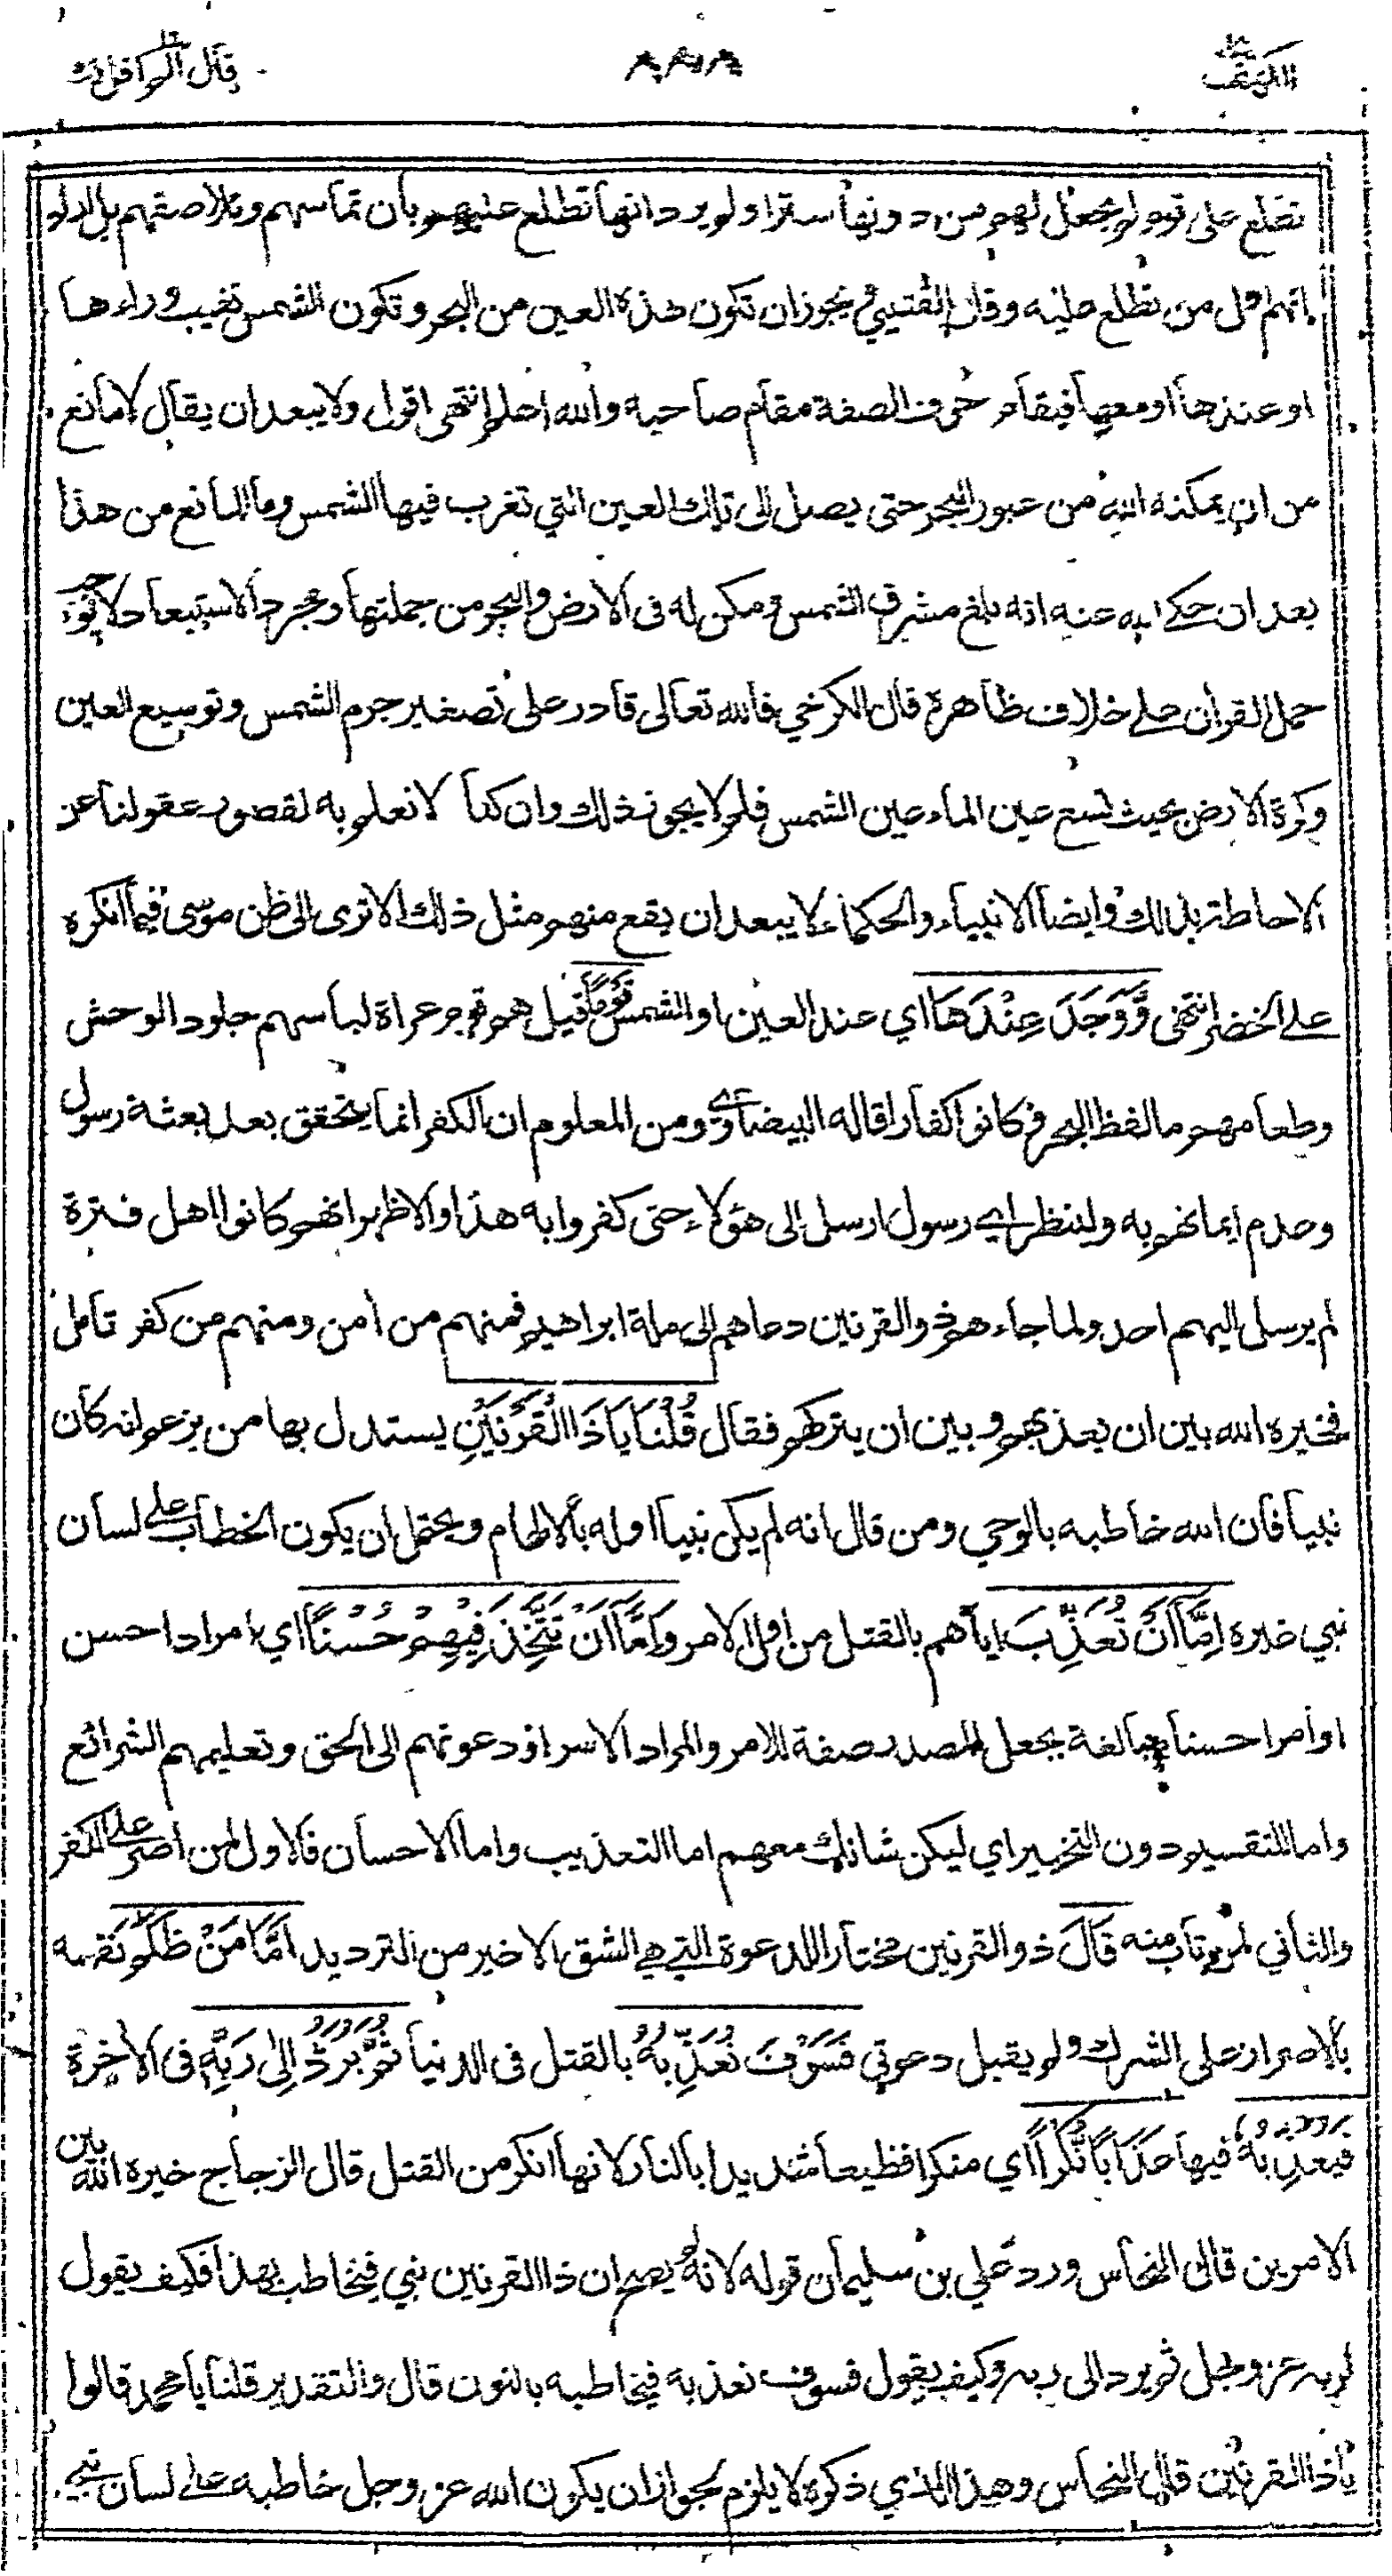 الكهف
قال الم اقل لك
تطلع على قوم لم نجعل لهم من دونها سترا ولم يرد انها تطلع عليهم بأن تماسهم وتلاصقهم بل اراد
انهم اول من تطلع عليه وقال القتيبي يجوز ان تكون هذه العين من البحر وتكون الشمس تغيب وراءها
او عندها او معها فيقام حرف الصفة مقام صاحبه والله اعلم انتهى اقول ولا يبعد ان يقال لا مانع
من ان يمكنه الله من عبور البحر حتى يصل الى تلك العين التي تغرب فيها الشمس وما المانع من هذا
بعد ان حكى الله عنه انه بلغ مشرق الشمس ومكن له في الارض والبحر من جملتها ومجرد الاستبعاد لا يوجب
حمل القرآن على خلاف ظاهره قال الكرخي فالله تعالى قادر على تصغير جرم الشمس وتوسيع العين
وكرة الارض بحيث تسع عين الماء عين الشمس فلم لا يجوز ذلك وان كنا لا نعلم به لقصور عقولنا عن
الاحاطة بذلك وايضا الانبياء والحكماء لا يبعد ان يقع منهم مثل ذلك الا ترى الى ظن موسى فيما انكره
على الخضر انتهى وَّوَجَدَ عِنْدَهَا اي عند العين او الشمس قَوْمًا قيل هم قوم عراة لباسهم جلود الوحش
وطعامهم ما لفظ البحر فكانوا كفارا قاله البيضاوي ومن المعلوم ان الكفر انما يتحقق بعد بعثة رسول
وعدم ايمانهم به ولينظر اي رسول ارسل الى هؤلاء حتى كفروا به هذا والاظهر انهم كانوا اهل فترة
لم يرسل اليهم احد ولما جاءهم ذو القرنين دعاهم الى ملة ابراهيم فمنهم من آمن ومنهم من كفر تأمل
فخيره الله بين ان يعذبهم وبين ان يتركهم فقال قُلْنَا يَا ذَا الْقَرْنَيْنِ يستدل بها من يزعم انه كان
نبيا فان الله خاطبه بالوحي ومن قال انه لم يكن نبيا اوله بالالهام ويحتمل ان يكون الخطاب على لسان
نبي غيره اِمَّا اَنْ تُعَذِّبَ اياهم بالقتل من اول الامر وَاِمَّا اَنْ تَتَّخِذَ فِيْهِمْ حُسْنًا اي امرا ذا حسن
او امرا حسنا مبالغة بجعل المصدر صفة للامر والمراد الاسر او دعوتهم الى الحق وتعليمهم الشرائع
واما للتقسيم دون التخيير اي ليكن شانك معهم اما التعذيب واما الاحسان فالاول لمن اصر على الكفر
والثاني لمن تاب منه قَالَ ذو القرنين مختارا للدعوة التي هي الشق الاخير من الترديد اَمَّا مَنْ ظَلَمَ نفسه
بالاصرار على الشرك ولم يقبل دعوتي فَسَوْفَ نُعَذِّبُهُ بالقتل في الدنيا ثُمَّ يُرَدُّ اِلٰى رَبِّهٖ في الآخرة
فَيُعَذِّبُهُ فيها عَذَابًا نُّكْرًا اي منكرا فظيعا شديدا بالنار لانها انكر من القتل قال الزجاج خيره الله بين
الامرين قال النحاس ورد علي بن سليمان قوله لانه لم يصح ان ذا القرنين نبي فيخاطب بهذا فكيف يقول
لربه عز وجل ثم يرد الى ربه وكيف يقول فسوف نعذبه فيخاطبه بالنون قال والتقدير قلنا يا محمد قالوا
يا ذا القرنين قال النحاس وهذا الذي ذكره لا يلزم لجواز ان يكون الله عز وجل خاطبه على لسان نبي